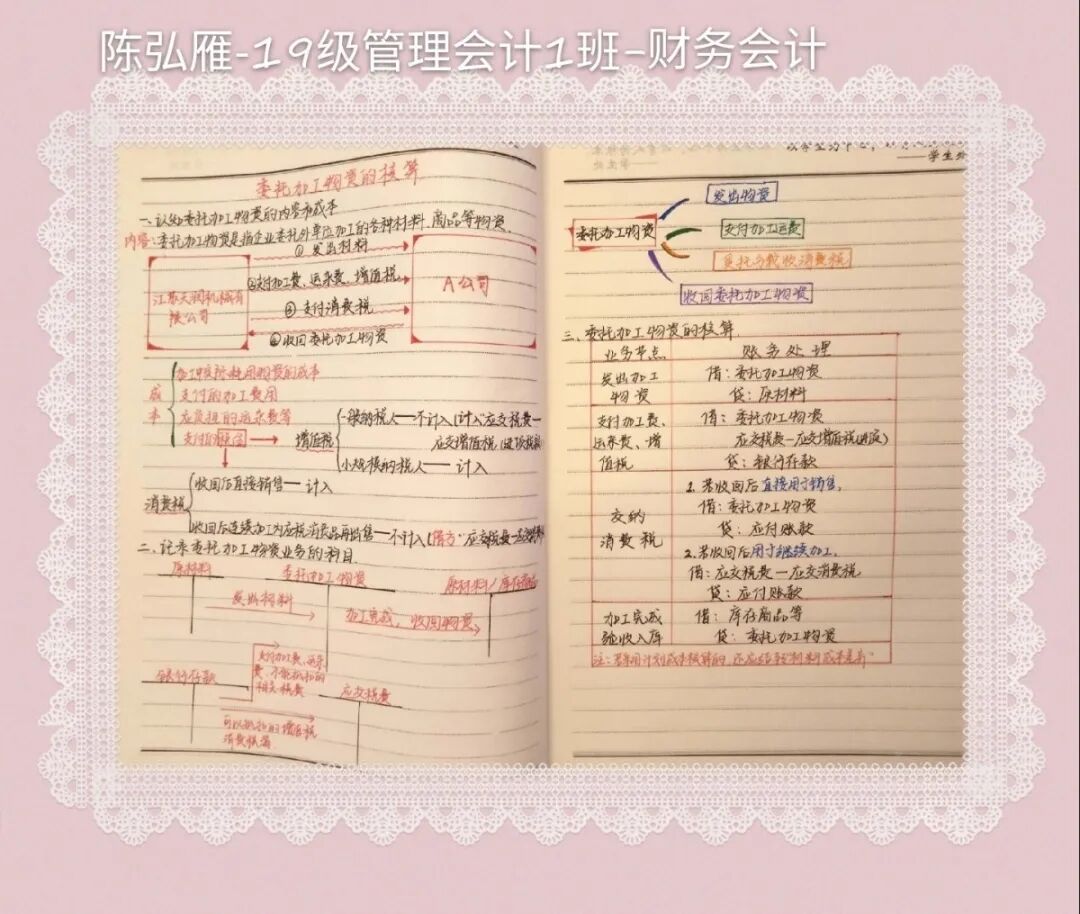 陈弘雁-19级管理会计1班-财务会计
委托加工物资的核算
一、认知委托加工物资的内容和成本
内容:委托加工物资是指企业委托外单位加工的各种材料、商品等物资。
① 发出材料
江苏天润机械有
限公司
②支付加工费、运杂费、增值税
③ 支付消费税
④收回委托加工物资
A公司
成本
加工中实际耗用物资的成本
支付的加工费用
应负担的运杂费等
支付的税金
增值税
一般纳税人——不计入(计入"应交税费—
应交增值税(进项税额)
小规模纳税人——计入
消费税
收回后直接销售——计入
收回后连续加工为应税消费品再出售——不计入(借方"应交税费—应交消费税
二、记录委托加工物资业务的科目
原材料
委托加工物资
原材料/库存商品
发出材料
加工完成,收回物资
支付加工费、运杂
费、不能抵扣的
相关税费
银行存款
应交税费
可以抵扣的增值税
消费税等
——学生处
委托加工物资
发出物资
支付加工运费
受托方代收消费税
收回委托加工物资
三、委托加工物资的核算
业务节点 账务处理
发出加工 借:委托加工物资
物资 贷:原材料
支付加工费、 借:委托加工物资
运杂费、增 应交税费—应交增值税(进项)
值税 贷:银行存款
1.若收回后直接用于销售,
借:委托加工物资
交纳 贷:应付账款
消费税 2.若收回后用于继续加工,
借:应交税费—应交消费税
贷:应付账款
加工完成 借:库存商品等
验收入库 贷:委托加工物资
注:若采用计划成本核算的,还应结转"材料成本差异"